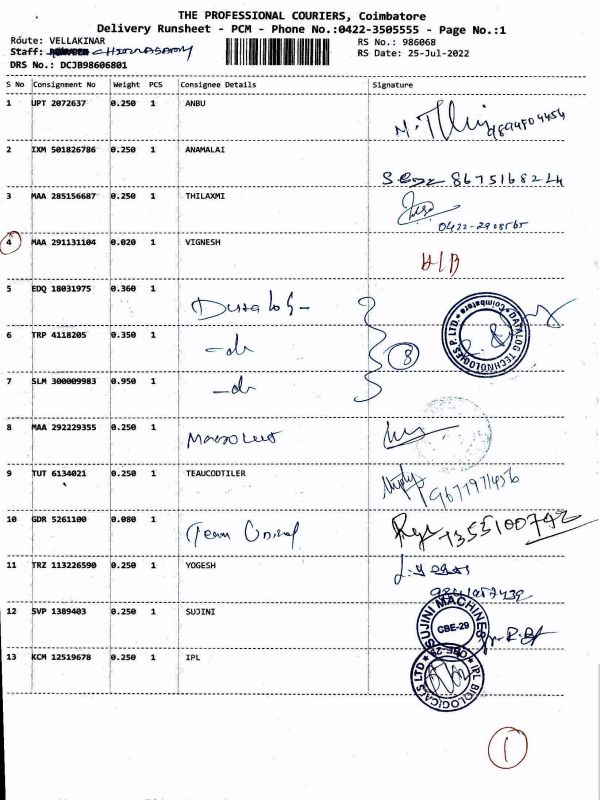 THE PROFESSIONAL COURIERS, Coimbatore
Delivery Runsheet - PCM - Phone No.:0422-3505555 - Page No.:1
Route: VELLAKINAR
RS No.: 986068
Staff: CHINNASAMY
RS Date: 25-Jul-2022
DRS No.: DCJB98606801
S No Consignment No Weight PCS Consignee Details Signature
1 UPT 2072637 0.250 1 ANBU
2 IXM 501826786 0.250 1 ANAMALAI
8675168224
3 MAA 285156687 0.250 1 THILAXMI
0422-2908565
4 MAA 291131104 0.020 1 VIGNESH
5 EDQ 18031975 0.360 1
6 TRP 4118205 0.350 1 -do
8
7 SLM 300009983 0.950 1 -do
DATALOG TECHNOLOGIES P. LTD. Coimbatore
8 MAA 292229355 0.250 1
9 TUT 6134021 0.250 1 TEAUCODTILER
10 GDR 5261100 0.080 1 Team
11 TRZ 113226590 0.250 1 YOGESH
12 SVP 1389403 0.250 1 SUJINI
SUJINI MACHINES
CBE-29
13 KCM 12519678 0.250 1 IPL
IPL BIOLOGICALS LTD CBE-29
1